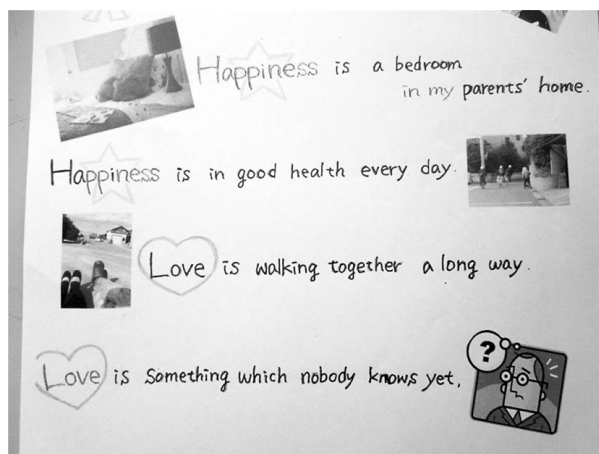 Happiness is a bedroom
in my parents' home.
Happiness is in good health every day.
Love is walking together a long way.
Love is something which nobody knows yet.
?